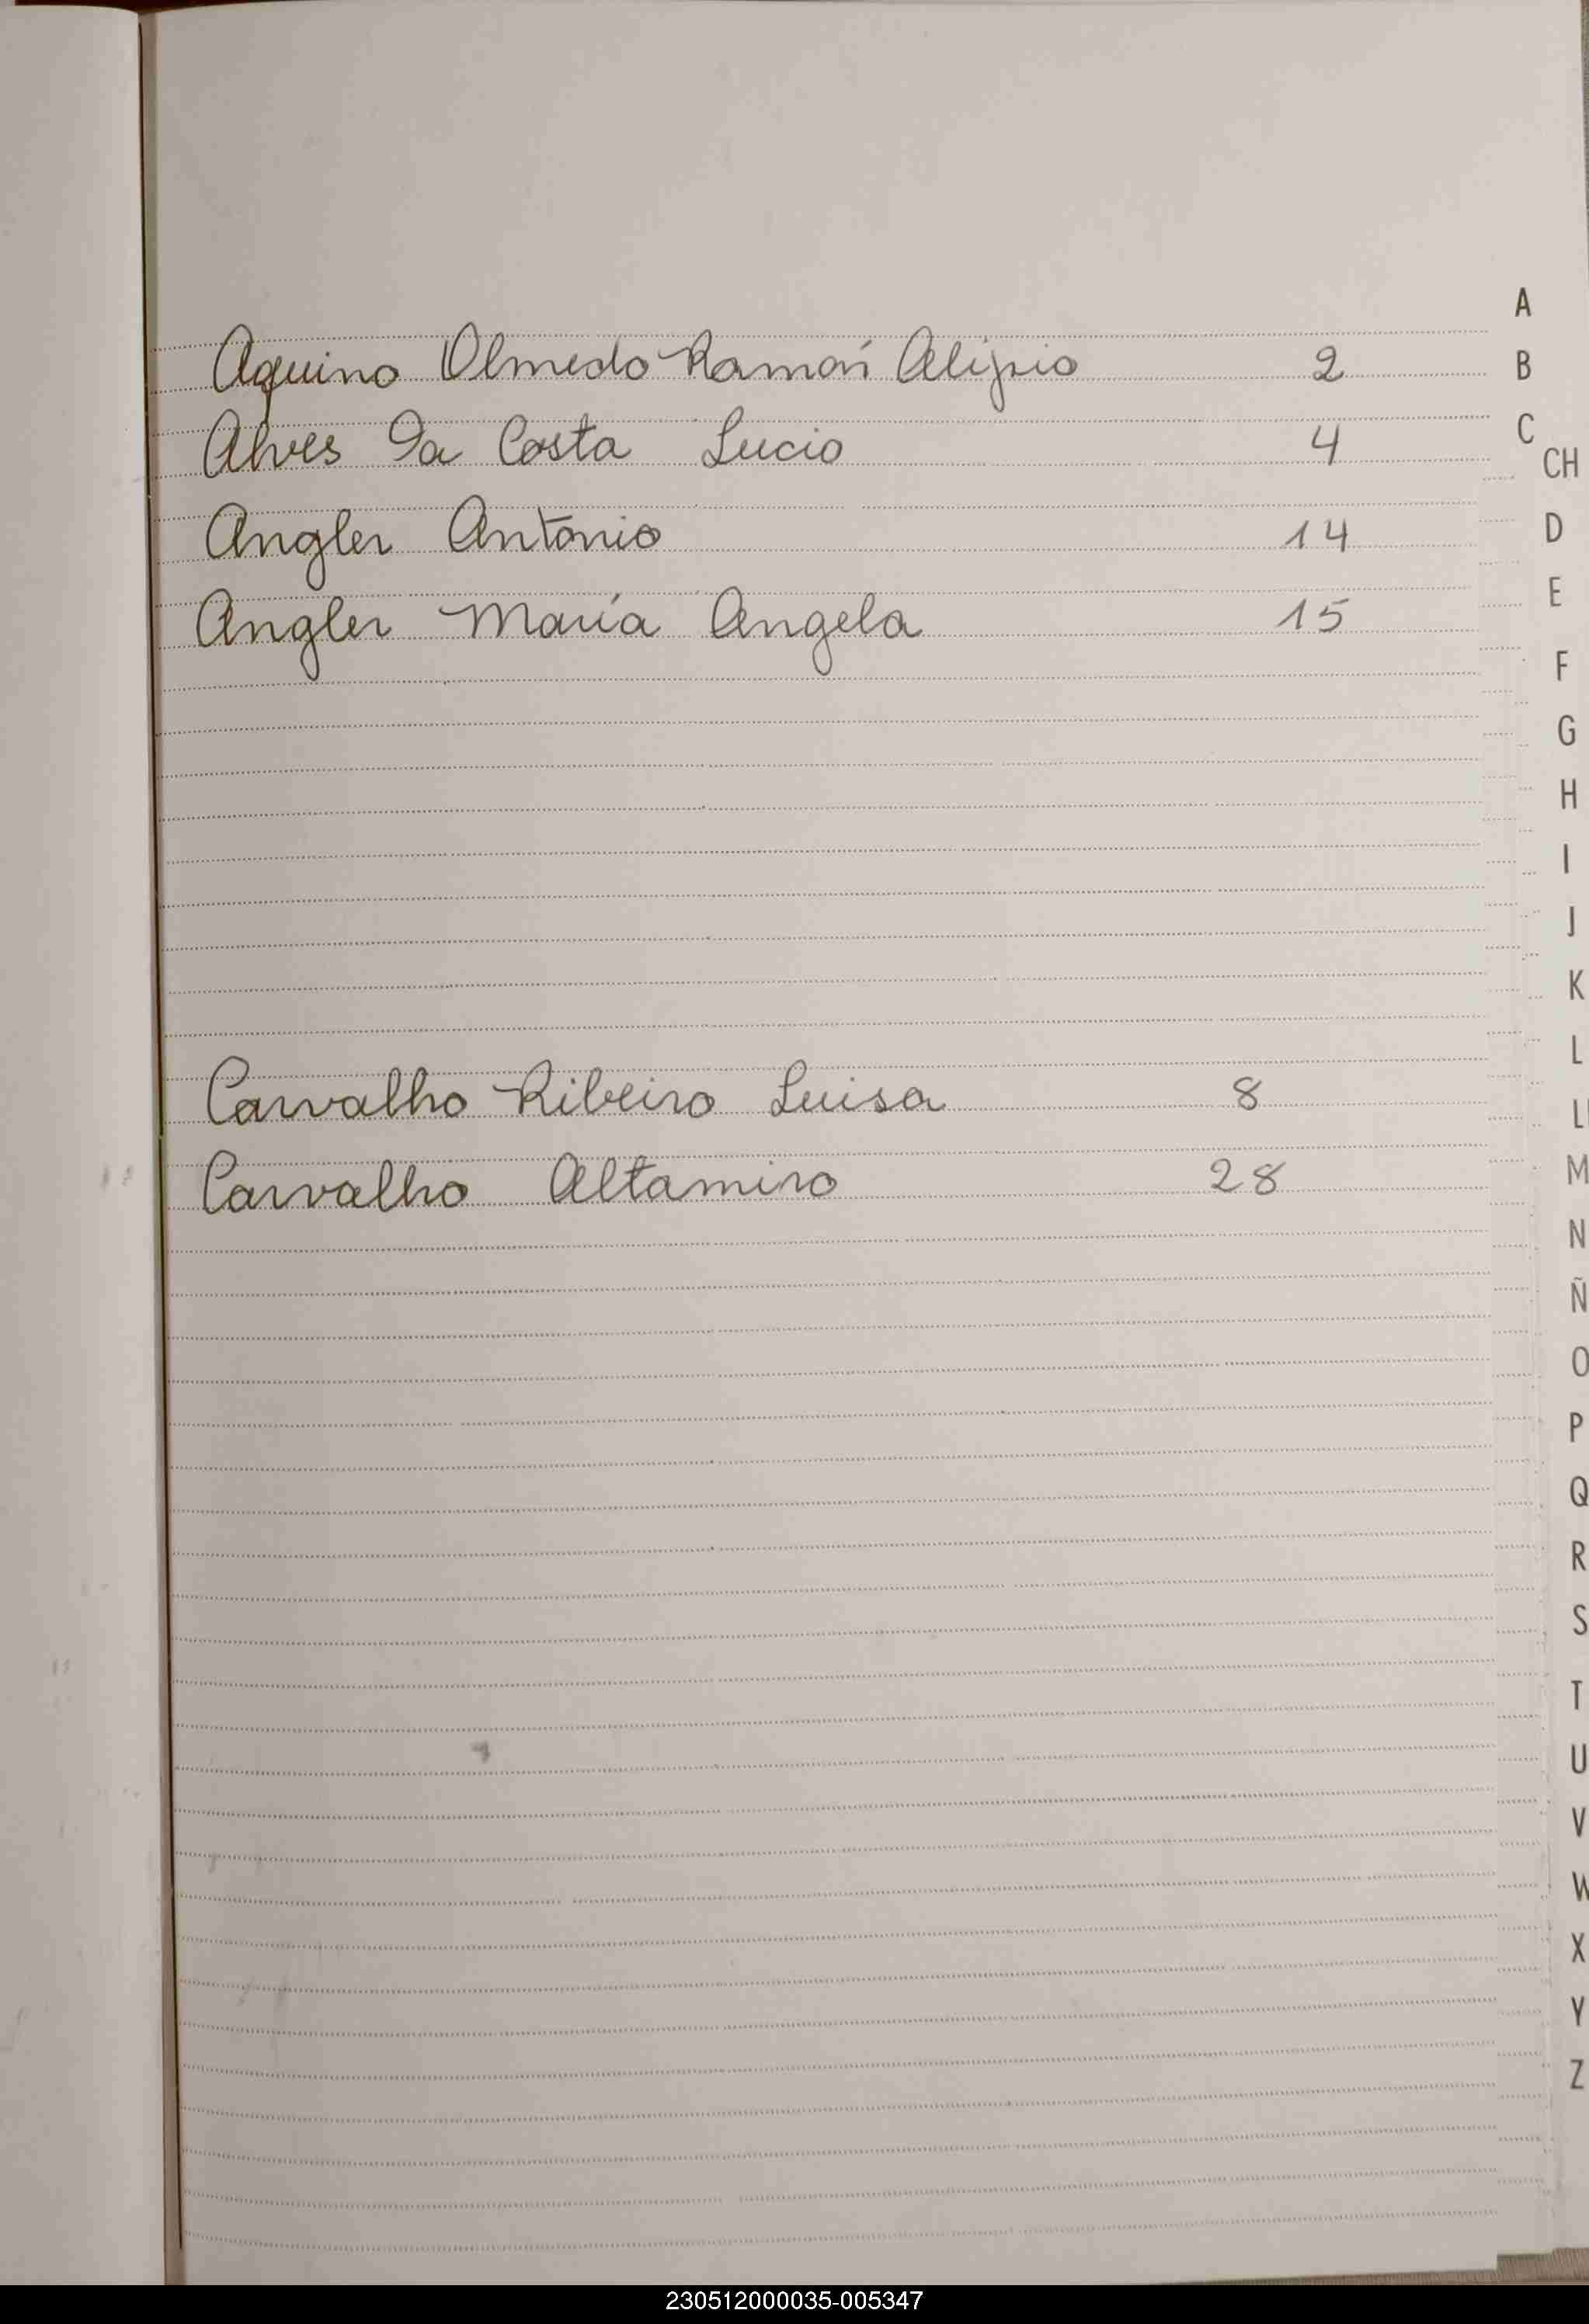 Aquino Olmedo Ramón Alipio 2
Alves Da Costa Lucio 4
Angler Antonio 14
Angler María Angela 15
Carvalho Ribeiro Luisa 8
Carvalho Altamiro 28
A
B
C
CH
D
E
F
G
H
I
J
K
L
Ll
M
N
Ñ
O
P
Q
R
S
T
U
V
W
X
Y
Z
230512000035-005347